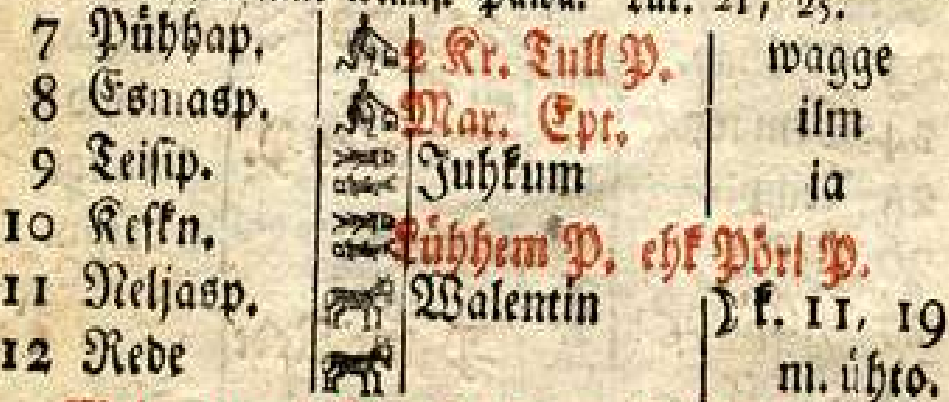 7 Pühhap. 2 Kr. Tull P. wagge
8 Esmasp. Mar. Epr. ilm
9 Teisip. Juhkum ja
10 Keskn. Lühhem P. ehk Pöri P.
11 Neljasp. Walentin ☽ k. 11, 19
12 Rede m. ühto.